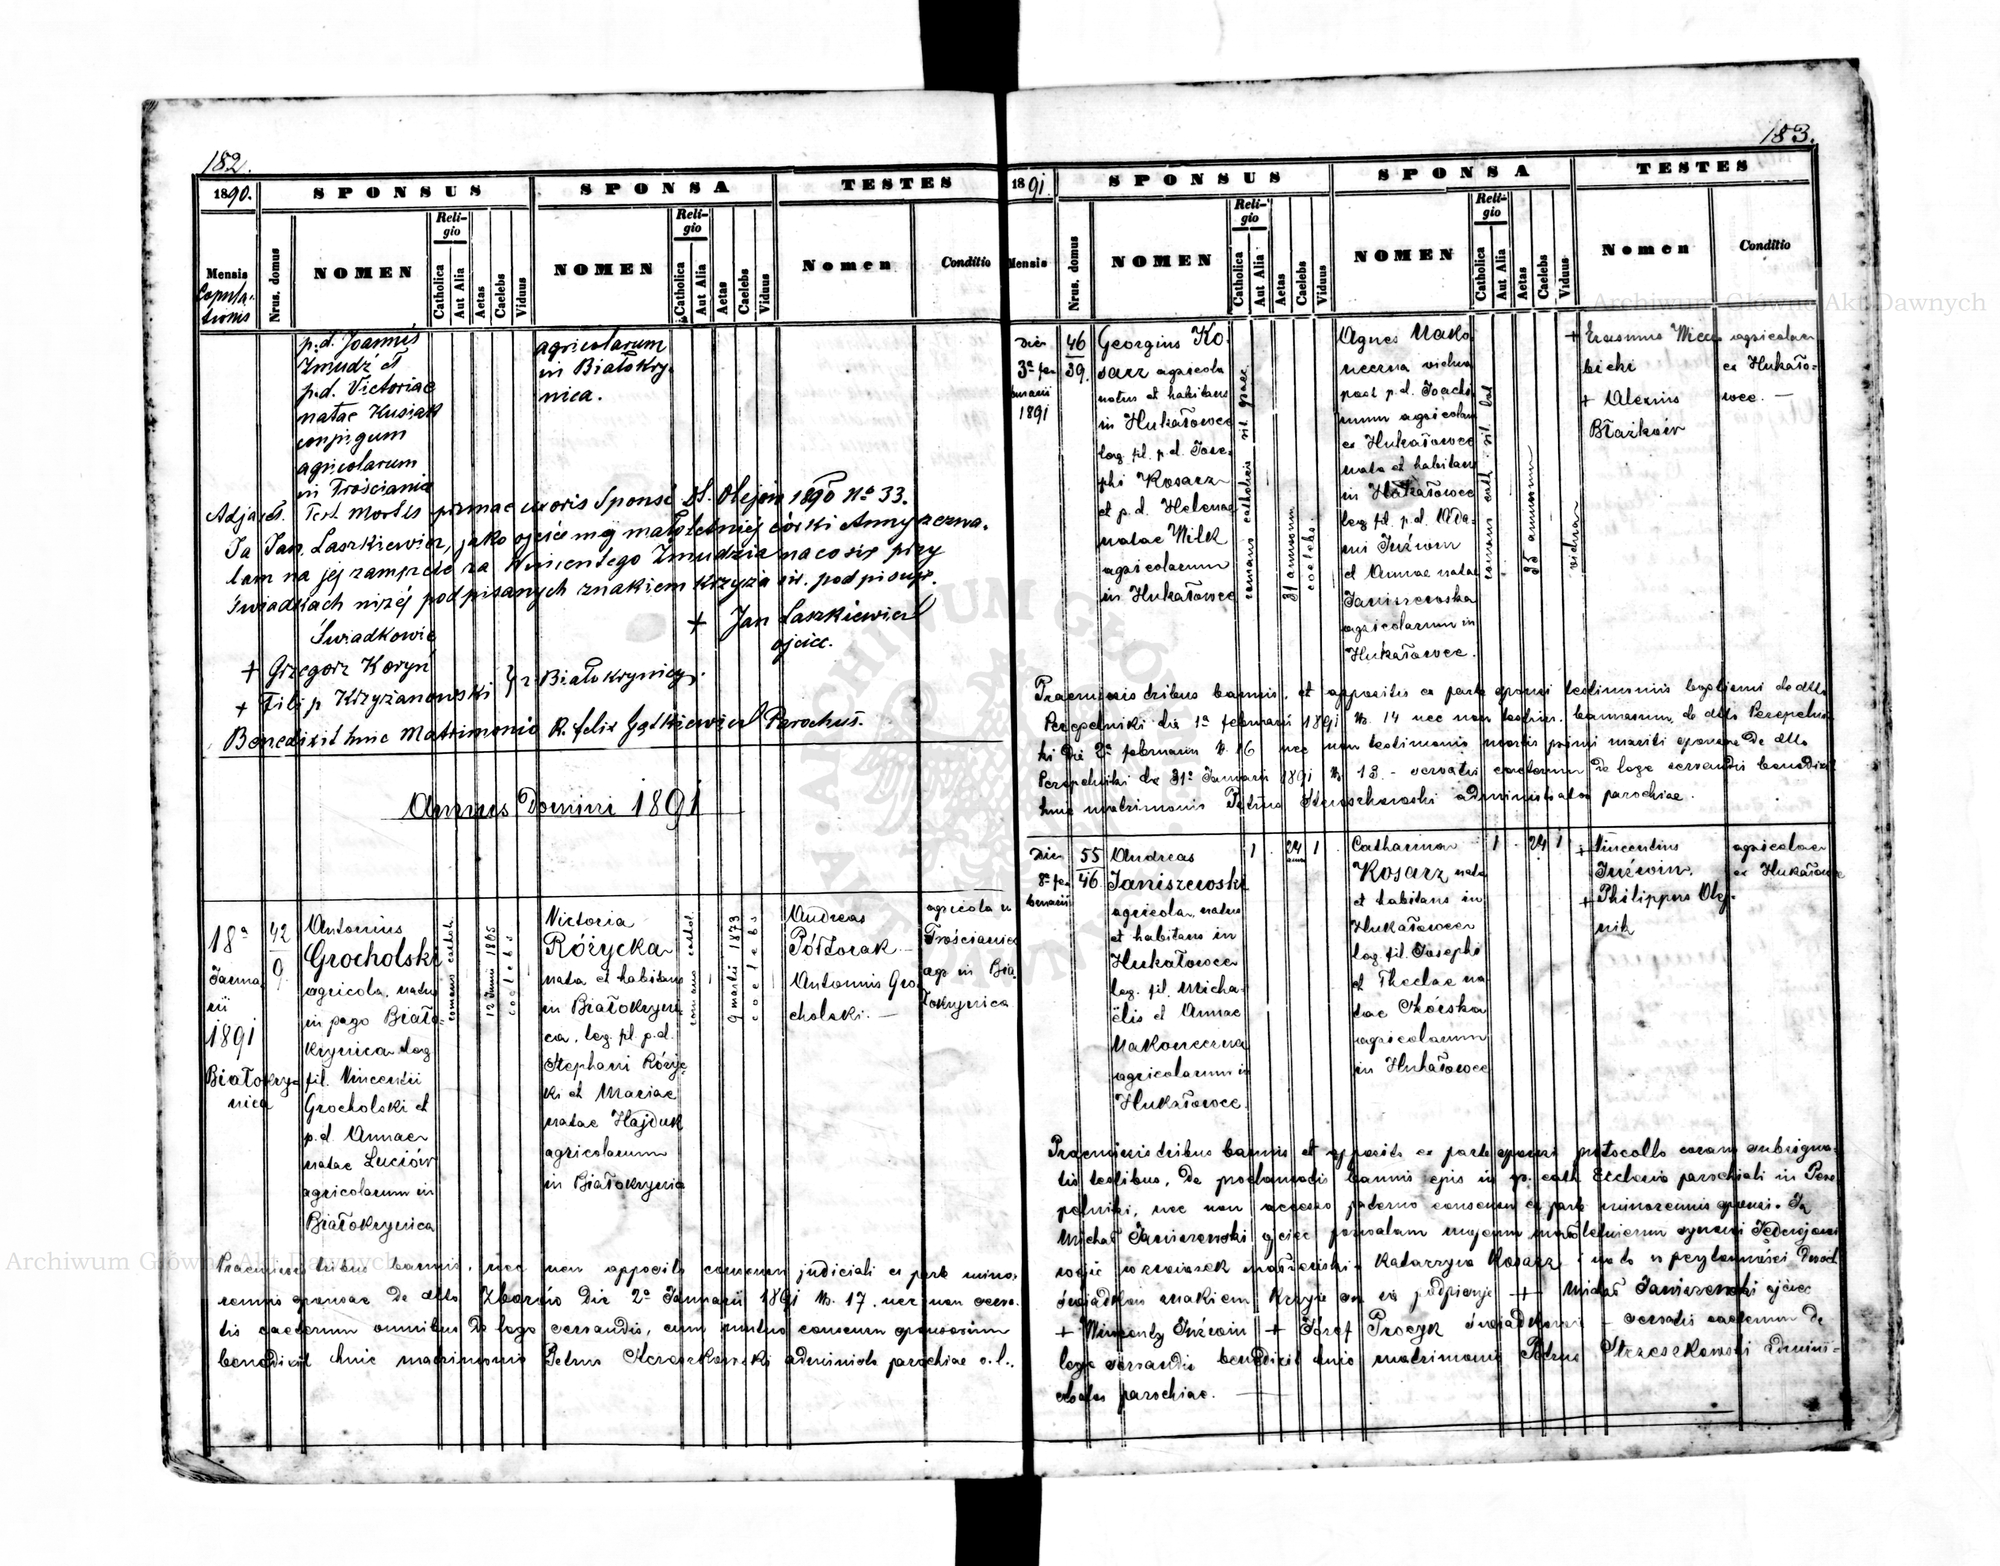 182.
1890.
SPONSUS
SPONSA
TESTES
Mensis
Copula-
tionis
Nrus. domus
NOMEN
Religio
Catholica
Aut Alia
Aetas
Caelebs
Viduus
NOMEN
Religio
Catholica
Aut Alia
Aetas
Caelebs
Viduus
Nomen
Conditio
p.d. Joannis
Żmudź et
p.d. Victoriae
natae Kusiak
conjugum
agricolarum
in Trościaniec
agricolarum
in Białokry
nica.
Test. Mortis primae uxoris Sponsi
Olejów 1890 No 33.
Ja Jan Laszkiewicz, jako ojciec mej małoletniej córki Anny zezwa-
lam na jej zamęście za Wincentego Żmudzia na co się przy
świadkach niżej podpisanych znakiem krzyża św. podpisuję.
+ Jan Laszkiewicz
ojciec.
Świadkowie
+ Grzegorz Koryń
+ Filip Krzyżanowski
z Białokrynicy.
Benedixit huic Matrimonio R. Felix Parochus.
Annus Domini 1891
18a
Janua
rii
1891
Białokry
nica
42
9
Antonius
Grocholski
agricola, natus
in pago Biało-
krynica leg.
fil. Vincentii
Grocholski et
p.d. Annae
natae Luciów
agricolarum in
Białokrynica
romano cathol.
12 Junii 1865
coelebs
Victoria
Różycka
nata et habitans
in Białokryni
ca, leg. fil. p.d.
Stephani Róży
ki et Mariae
natae Hajduk
agricolarum
in Białokrynica
romano cathol
9 martii 1873
coelebs
Andreas
Półtorak
Antonius Gro
cholski. —
agricola in
Trościaniec
agr. in Bia
łokrynica
Praemissis tribus bannis, nec non apposito consensu judiciali ex parte mino-
rennis sponsae de dtto Zborów die 2a Januarii 1891 N. 17. nec non serva-
tis caeterum omnibus de lege servandis, cum mutuo consensu sponsorum
benedixit huic matrimonio Petrus Strzeszkowski administr. parochiae r.l.
183.
1891.
SPONSUS
SPONSA
TESTES
Mensis
Nrus. domus
NOMEN
Religio
Catholica
Aut Alia
Aetas
Caelebs
Viduus
NOMEN
Religio
Catholica
Aut Alia
Aetas
Caelebs
Viduus
Nomen
Conditio
Die
3a fe
bruarii
1891
46
39.
Georgius Ko
sarz agricola
natus et habitans
in Hukałowce
leg. fil. p.d. Jose-
phi Kosarz
et p.d. Helenae
natae Wilk
agricolarum
in Hukałowce
romano catholicus rit. graec
31 annorum
coelebs
Agnes Nako
neczna vidua
post p.d. Joachi
mum agricolam
ex Hukałowce
nata et habitans
in Hukałowce
leg. fil. p.d. Ada
mi Juźwin
et Annae natae
Janiszewska
agricolarum in
Hukałowce.
romano cath. rit. lat
35 annorum
vidua
+ Erasmus Wierz
bicki
+ Alexius
Błażków
agricolae
ex Hukało-
wce. —
Praemissis tribus bannis, et appositis ex parte sponsi testimoniis de dtto
Perepelniki die 1a februarii 1891 N. 14 nec non testim. bannorum de dtto Perepelni
ki die 2a februarii N. 16 nec non testimonio mortis primi mariti sponsae de dtto
Perepelniki die 31a Januarii 1891 N. 13. – servatis caeterum de lege servandis benedixit
huic matrimonio Petrus Strzeszkowski administrator parochiae.
Die
8a fe
bruarii
55
46
Andreas
Janiszewski
agricola, natus
et habitans in
Hukałowce
leg. fil. Micha-
ëlis et Annae
Nakoneczna
agricolarum in
Hukałowce.
1
24
annor
1
Catharina
Kosarz nata
et habitans in
Hukałowce
leg. fil. Josephi
et Theclae na
tae Chórska
agricolarum
in Hukałowce
1
24
1
+ Vincentius
Juźwin.
+ Philippus Olej
nik
agricolae
ex Hukałowce
Praemissis tribus bannis et apposito ex parte sponsi protocollo coram subsigna-
tis testibus, de proclamatis bannis ejus in gr. cath. Ecclesia parochiali in Pere
pelniki, nec non accesso paterno consensu ex parte minorennis sponsi. Ja
Michał Janiszewski ojciec pozwalam mojemu małoletniemu synowi Jędrzejowi
wejść w związek małżeński z Katarzyną Kosarz i na to w przytomności dwóch
świadków znakiem krzyża św. się podpisuję + Michał Janiszewski ojciec
+ Wincenty Juźwin + Józef Procyk świadkowie – servatis caeterum de
lege servandis benedixit huic matrimonio Petrus Strzeszkowski admini-
strator parochiae.
Archiwum Główne Akt Dawnych
Archiwum Główne Akt Dawnych
ARCHIWUM GŁÓWNE AKT DAWNYCH